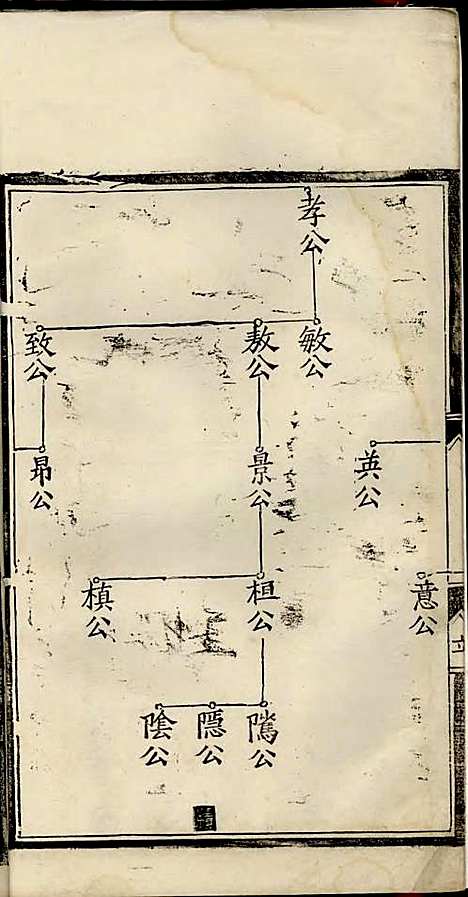 孝公
敏公
敖公
致公
英公
景公
昂公
意公
桓公
楨公
隲公
隱公
陰公